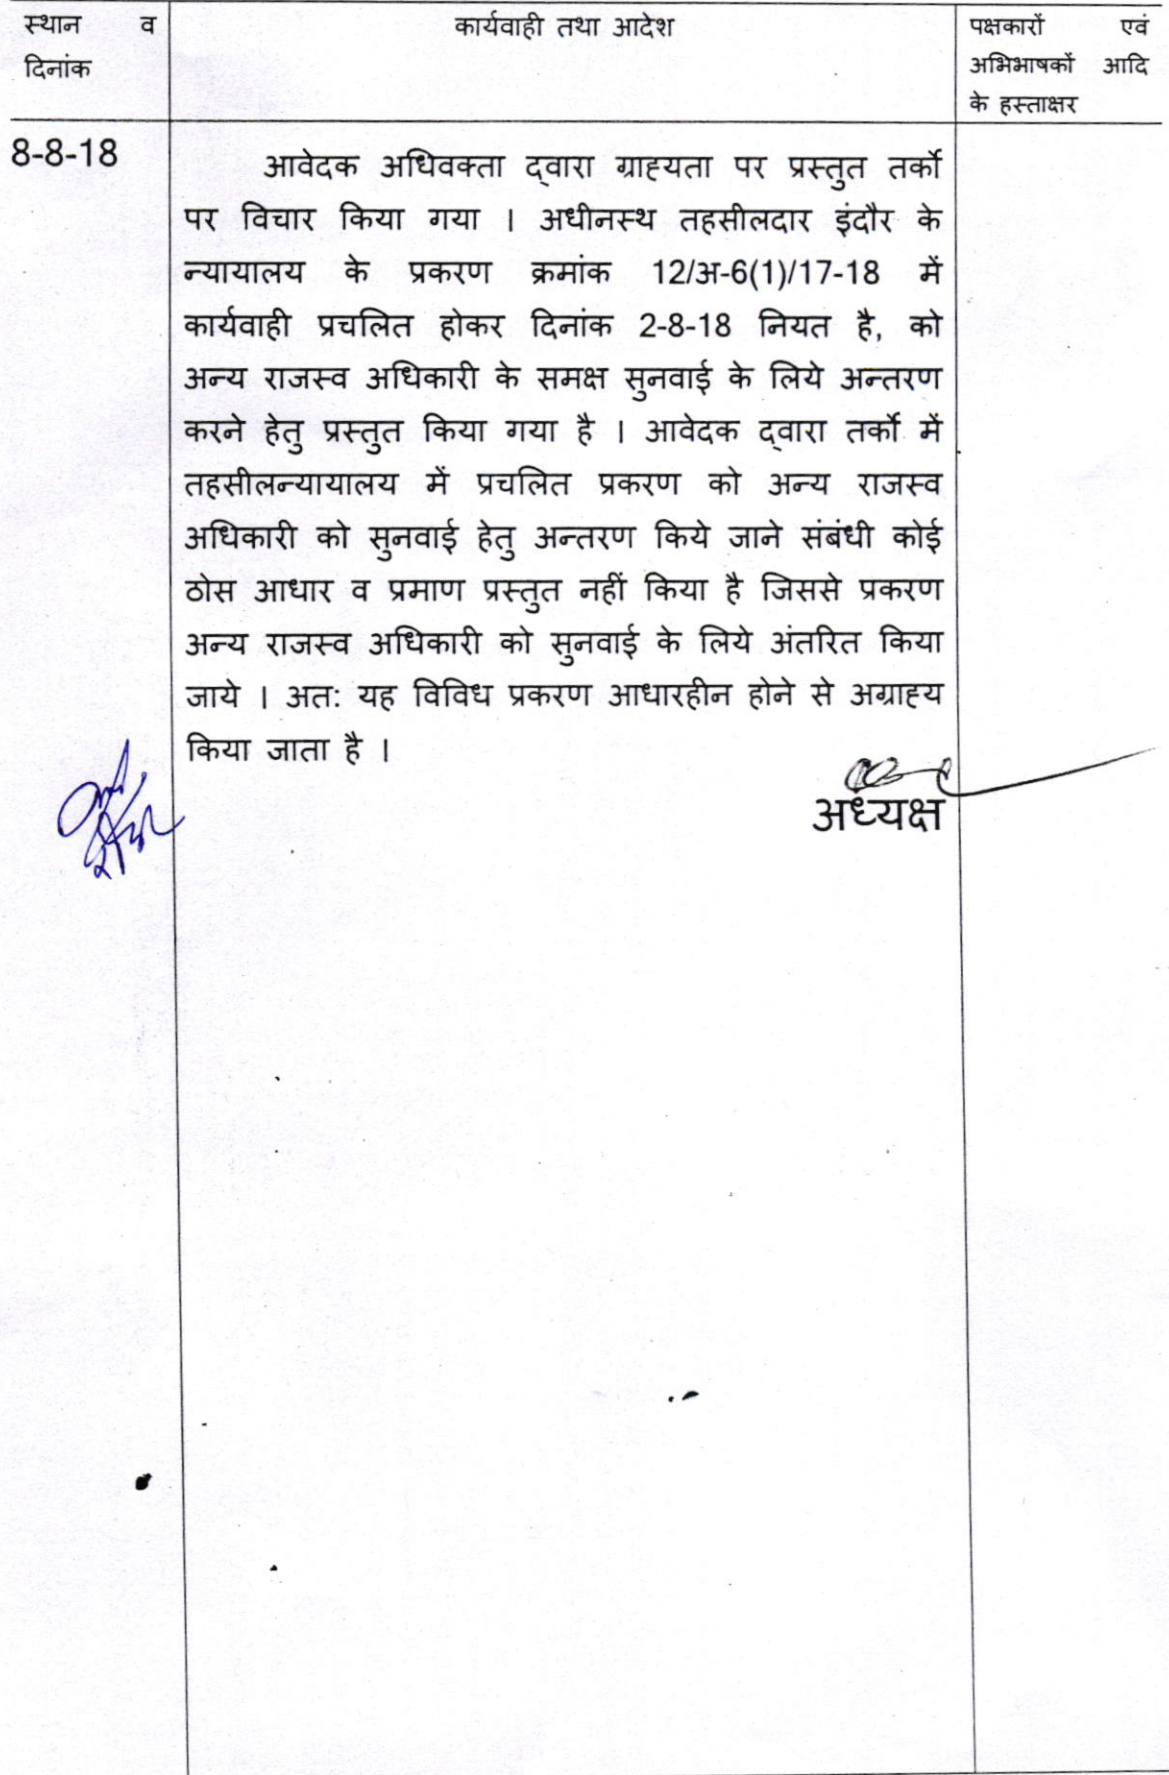 स्थान व
दिनांक
कार्यवाही तथा आदेश
पक्षकारों एवं
अभिभाषकों आदि
के हस्ताक्षर
8-8-18
आवेदक अधिवक्ता द्वारा ग्राह्यता पर प्रस्तुत तर्को
पर विचार किया गया । अधीनस्थ तहसीलदार इंदौर के
न्यायालय के प्रकरण क्रमांक 12/अ-6(1)/17-18 में
कार्यवाही प्रचलित होकर दिनांक 2-8-18 नियत है, को
अन्य राजस्व अधिकारी के समक्ष सुनवाई के लिये अन्तरण
करने हेतु प्रस्तुत किया गया है । आवेदक द्वारा तर्को में
तहसीलन्यायालय में प्रचलित प्रकरण को अन्य राजस्व
अधिकारी को सुनवाई हेतु अन्तरण किये जाने संबंधी कोई
ठोस आधार व प्रमाण प्रस्तुत नहीं किया है जिससे प्रकरण
अन्य राजस्व अधिकारी को सुनवाई के लिये अंतरित किया
जाये । अत: यह विविध प्रकरण आधारहीन होने से अग्राह्य
किया जाता है ।
अध्यक्ष